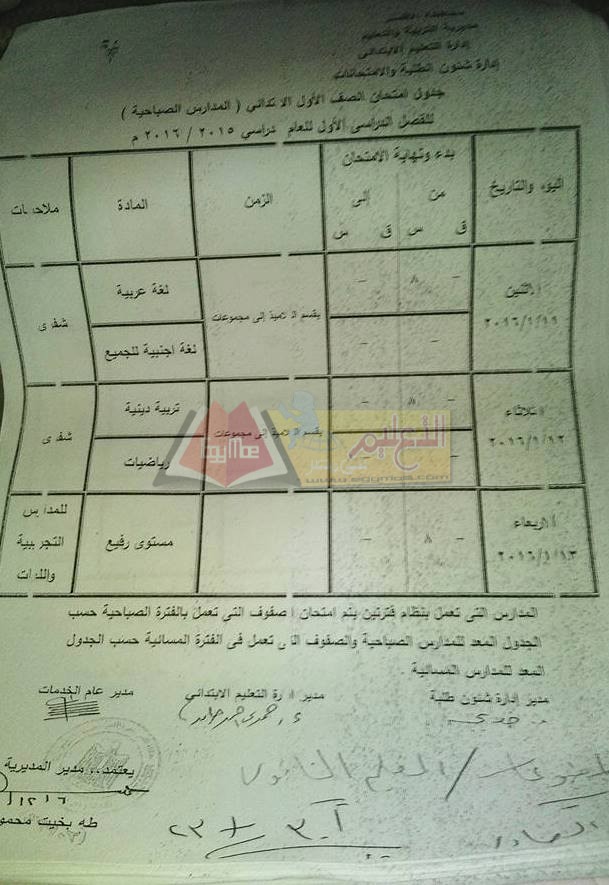 مديرية التربية والتعليم
إدارة التعليم الابتدائى
إدارة شئون الطلبة والامتحانات
جدول امتحان الصف الأول الابتدائي ( المدارس الصباحية )
للفصل الدراسى الأول للعام دراسي ٢٠١٥ / ٢٠١٦ م
اليوم والتاريخ بدء ونهاية الامتحان الزمن المادة ملاحظات
من إلى
ق س ق س
الاثنين ٢٠١٦/١/١١ - ٨ - - يقسم التلاميذ إلى مجموعات لغة عربية شفوى
- - - لغة اجنبية للجميع
الثلاثاء ٢٠١٦/١/١٢ - ٨ - - يقسم التلاميذ إلى مجموعات تربية دينية شفوى
- - - رياضيات
الاربعاء ٢٠١٦/١/١٣ - ٨ - - مستوى رفيع للمدارس التجريبية واللغات
التعليم
المدارس التى تعمل بنظام فترتين يتم امتحان الصفوف التى تعمل بالفترة الصباحية حسب
الجدول المعد للمدارس الصباحية والصفوف التى تعمل فى الفترة المسائية حسب الجدول
المعد للمدارس المسائية .
مدير إدارة شئون طلبة مدير إدارة التعليم الابتدائي مدير عام الخدمات
يعتمد،، مدير المديرية
طه بخيت محمود